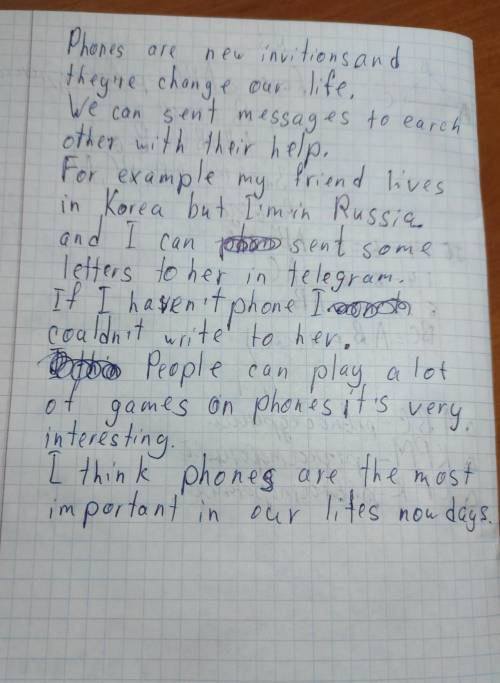 Phones are new invitions and
they're change our life.
We can sent messages to earch
other with their help.
For example my friend lives
in Korea but I'm in Russia
and I can sent some
letters to her in telegram.
If I haven't phone I
couldn't write to her.
People can play a lot
of games on phones it's very
interesting.
I think phones are the most
important in our lifes nowdays.